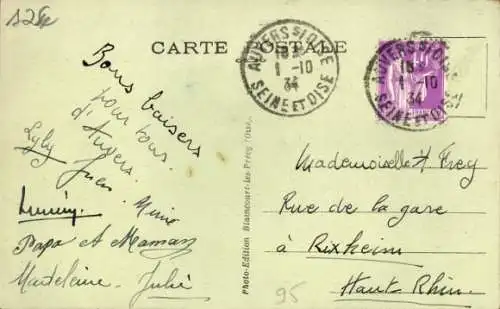 CARTE POSTALE
AUVERS S/ OISE
1-10
34
SEINE ET OISE
AUVERS S/ OISE
1-10
34
SEINE ET OISE
Bons baisers
pour tous
d'Auvers
Mimie
Papa et Maman
Madeleine Julie
Photo-Edition
Mademoiselle A. Frey
Rue de la gare
à Rixheim
Haut Rhin
95